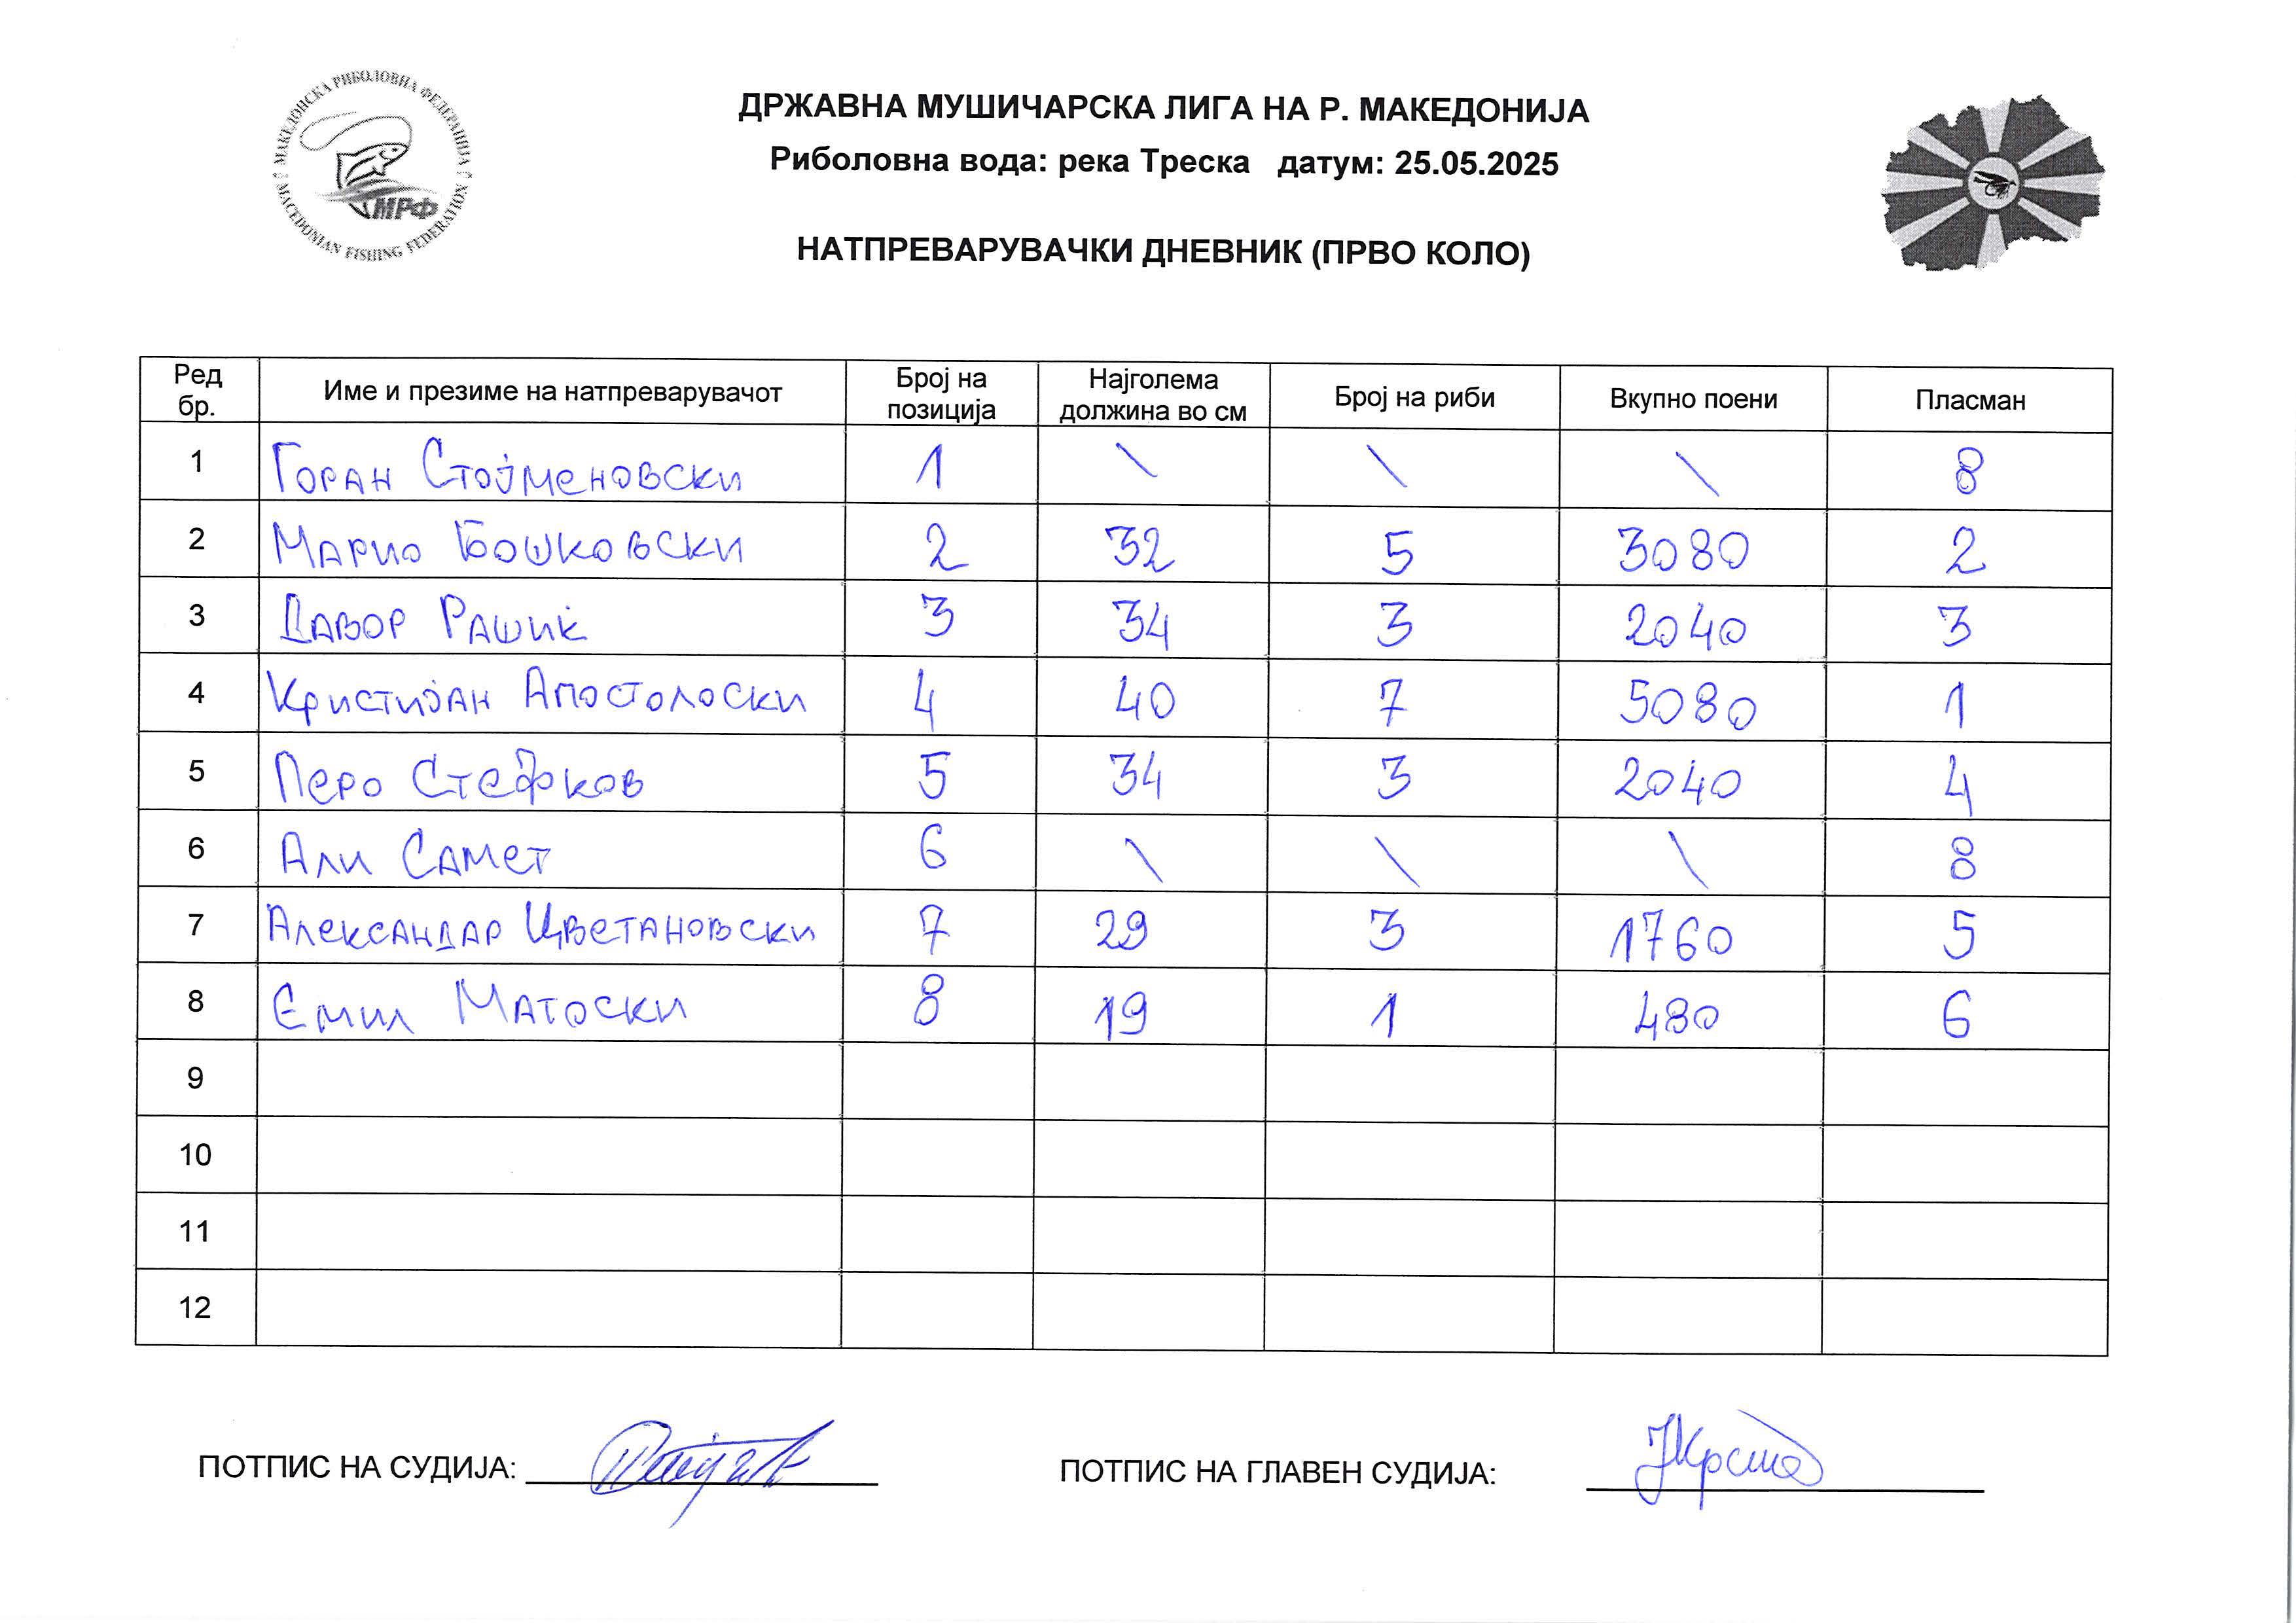 МАКЕДОНСКА РИБОЛОВНА ФЕДЕРАЦИЈА
MACEDONIAN FISHING FEDERATION
МРФ
ДРЖАВНА МУШИЧАРСКА ЛИГА НА Р. МАКЕДОНИЈА
Риболовна вода: река Треска датум: 25.05.2025
НАТПРЕВАРУВАЧКИ ДНЕВНИК (ПРВО КОЛО)
Ред бр. Име и презиме на натпреварувачот Број на позиција Најголема должина во см Број на риби Вкупно поени Пласман
1 Горан Стојменовски 1 \ \ \ 8
2 Марио Бошковски 2 32 5 3080 2
3 Давор Рашиќ 3 34 3 2040 3
4 Кристијан Апостолоски 4 40 7 5080 1
5 Перо Стефков 5 34 3 2040 4
6 Али Самет 6 \ \ \ 8
7 Александар Цветановски 7 29 3 1760 5
8 Емил Матоски 8 19 1 480 6
9
10
11
12
ПОТПИС НА СУДИЈА: ПОТПИС НА ГЛАВЕН СУДИЈА: